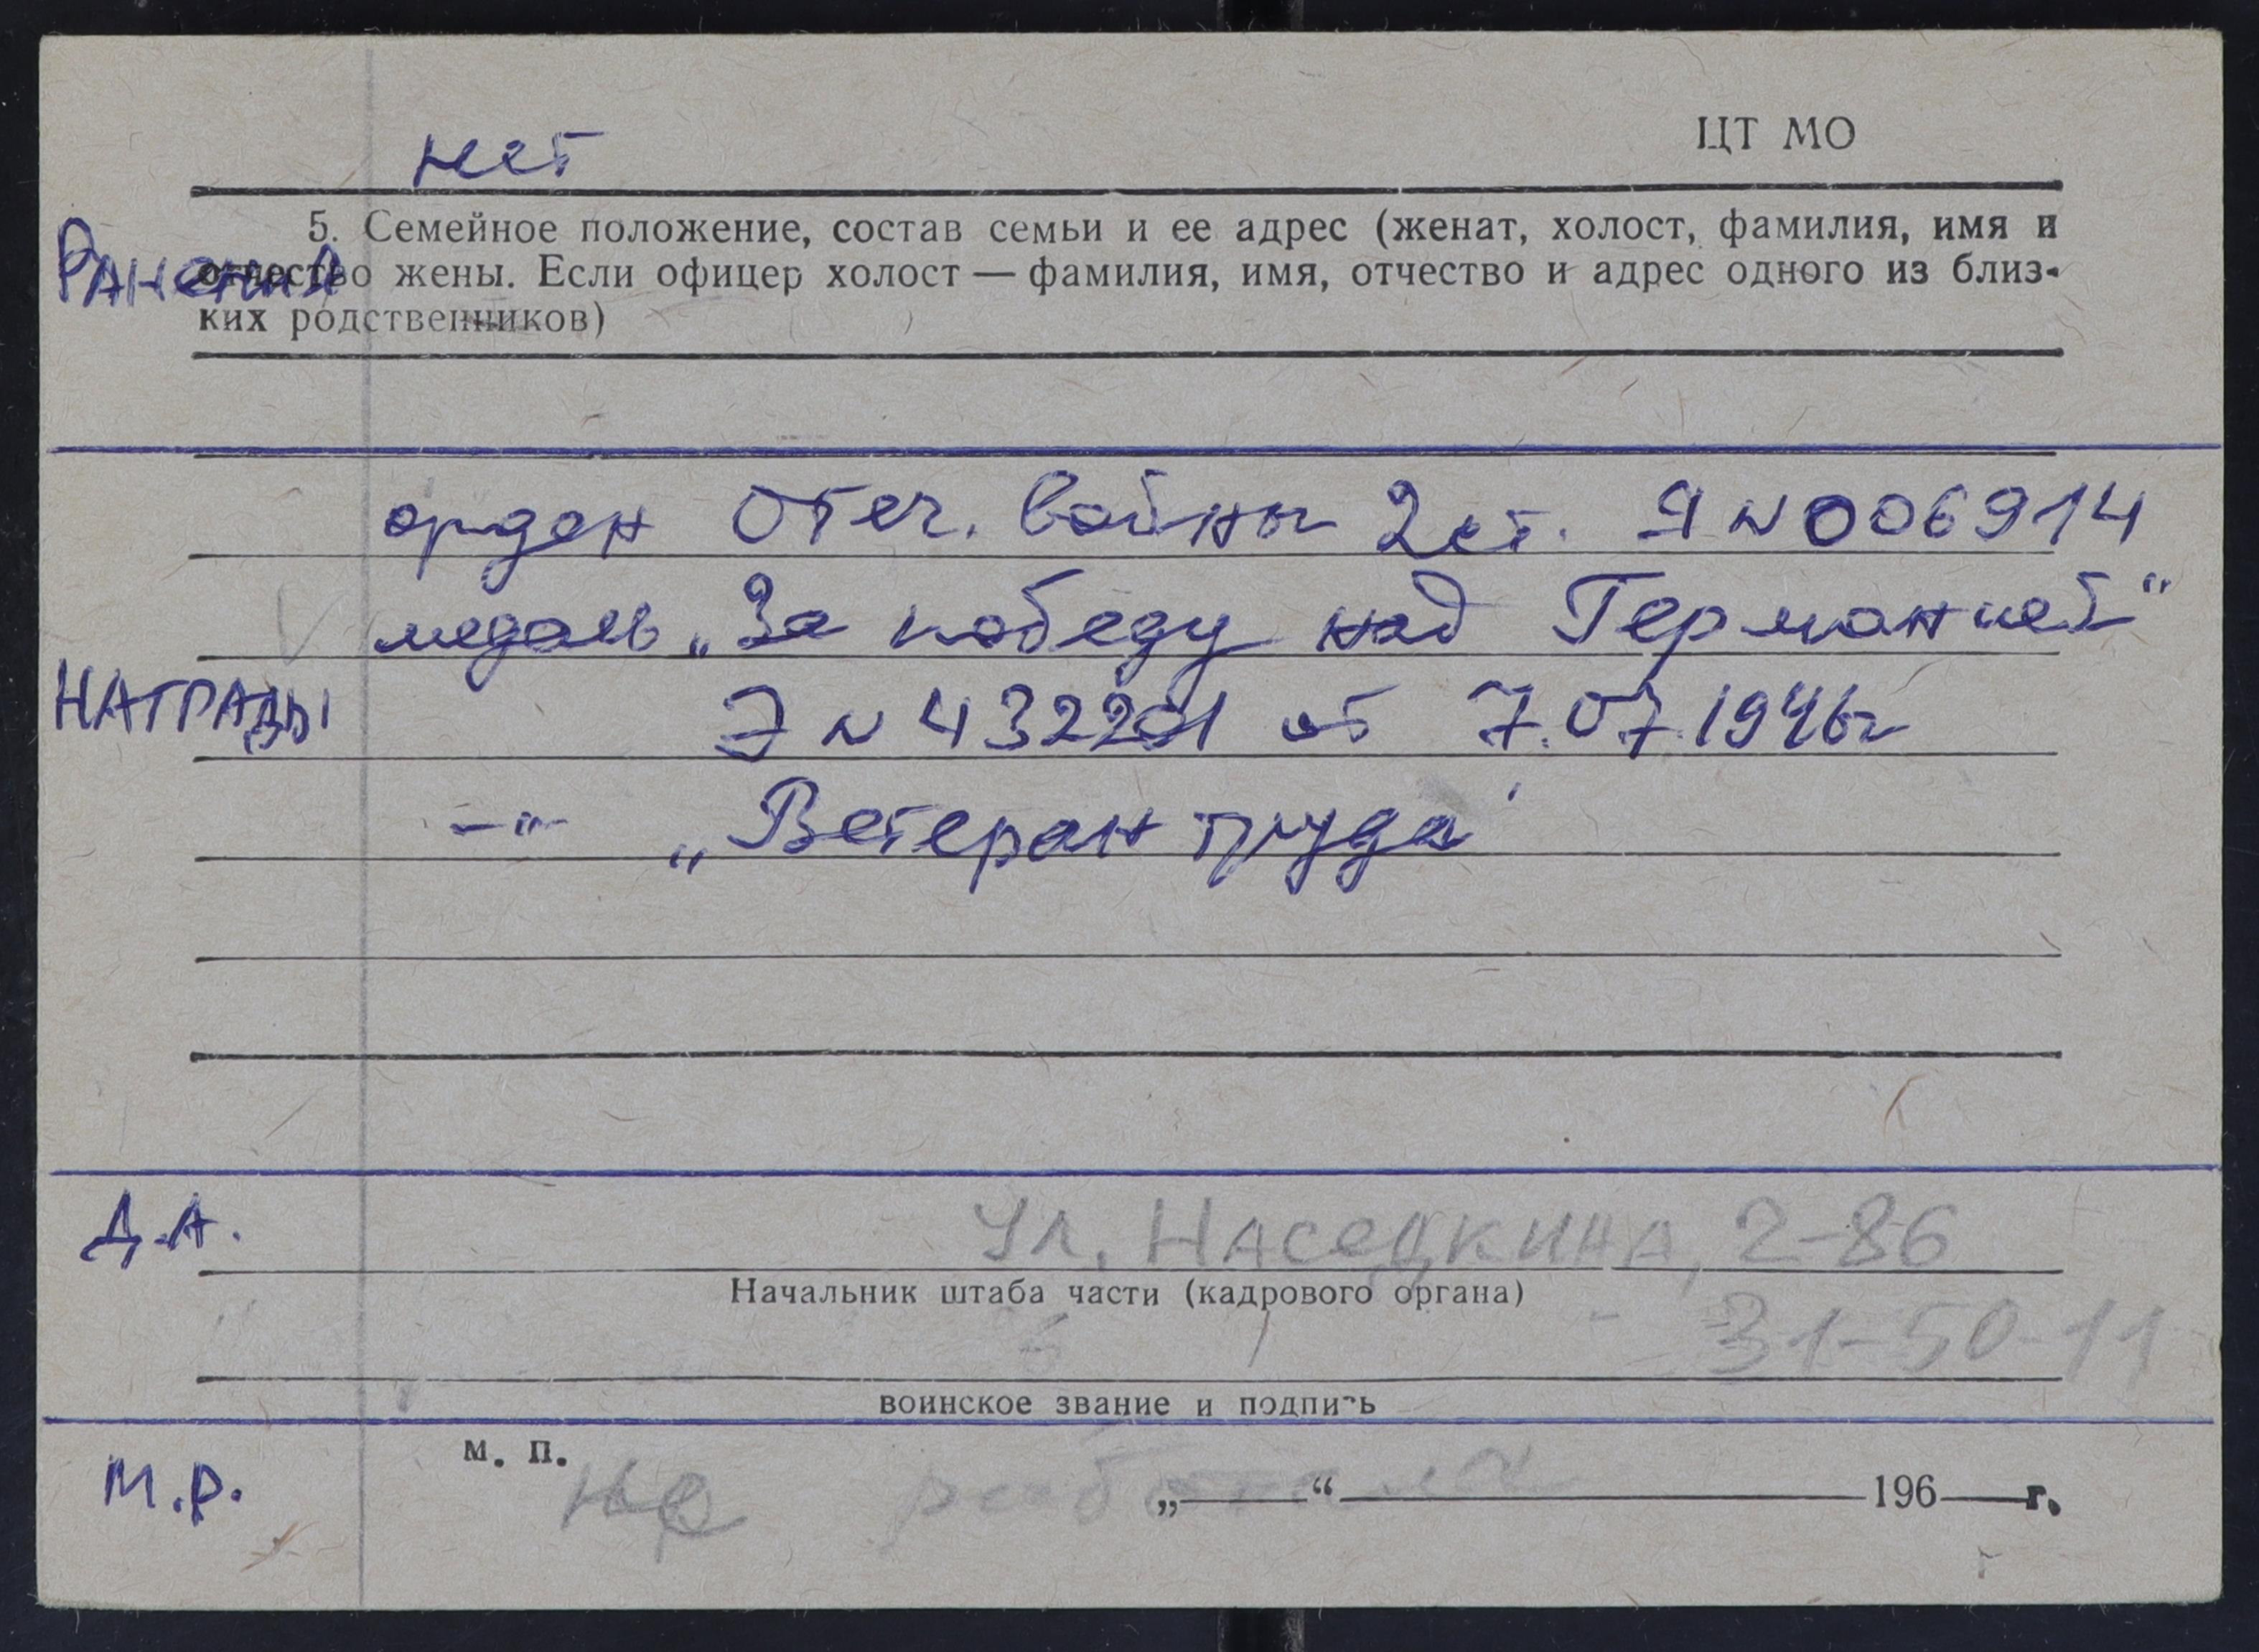 ЦТ МО
нет
5. Семейное положение, состав семьи и ее адрес (женат, холост, фамилия, имя и
Ранения
отчество жены. Если офицер холост — фамилия, имя, отчество и адрес одного из близ-
ких родственников)
орден Отеч. войны 2 ст. Я N 006914
медаль „За победу над Германией“
НАГРАДЫ
Э N 432201 от 7.07.1946г
—"— „Ветеран труда“
Д.А.
Ул. Наседкина, 2-86
Начальник штаба части (кадрового органа)
31-50-11
воинское звание и подпись
м. п.
М.Р.
не работает
„ “ 196 г.